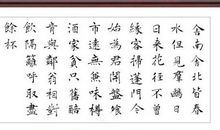 舍南舍北皆春
水但見羣鷗日
日來花徑不曾
緣客掃蓬門今
始為君開盤飧
市遠無兼味樽
酒家貧只舊醅
肯與鄰翁相對
飲隔籬呼取盡
餘杯